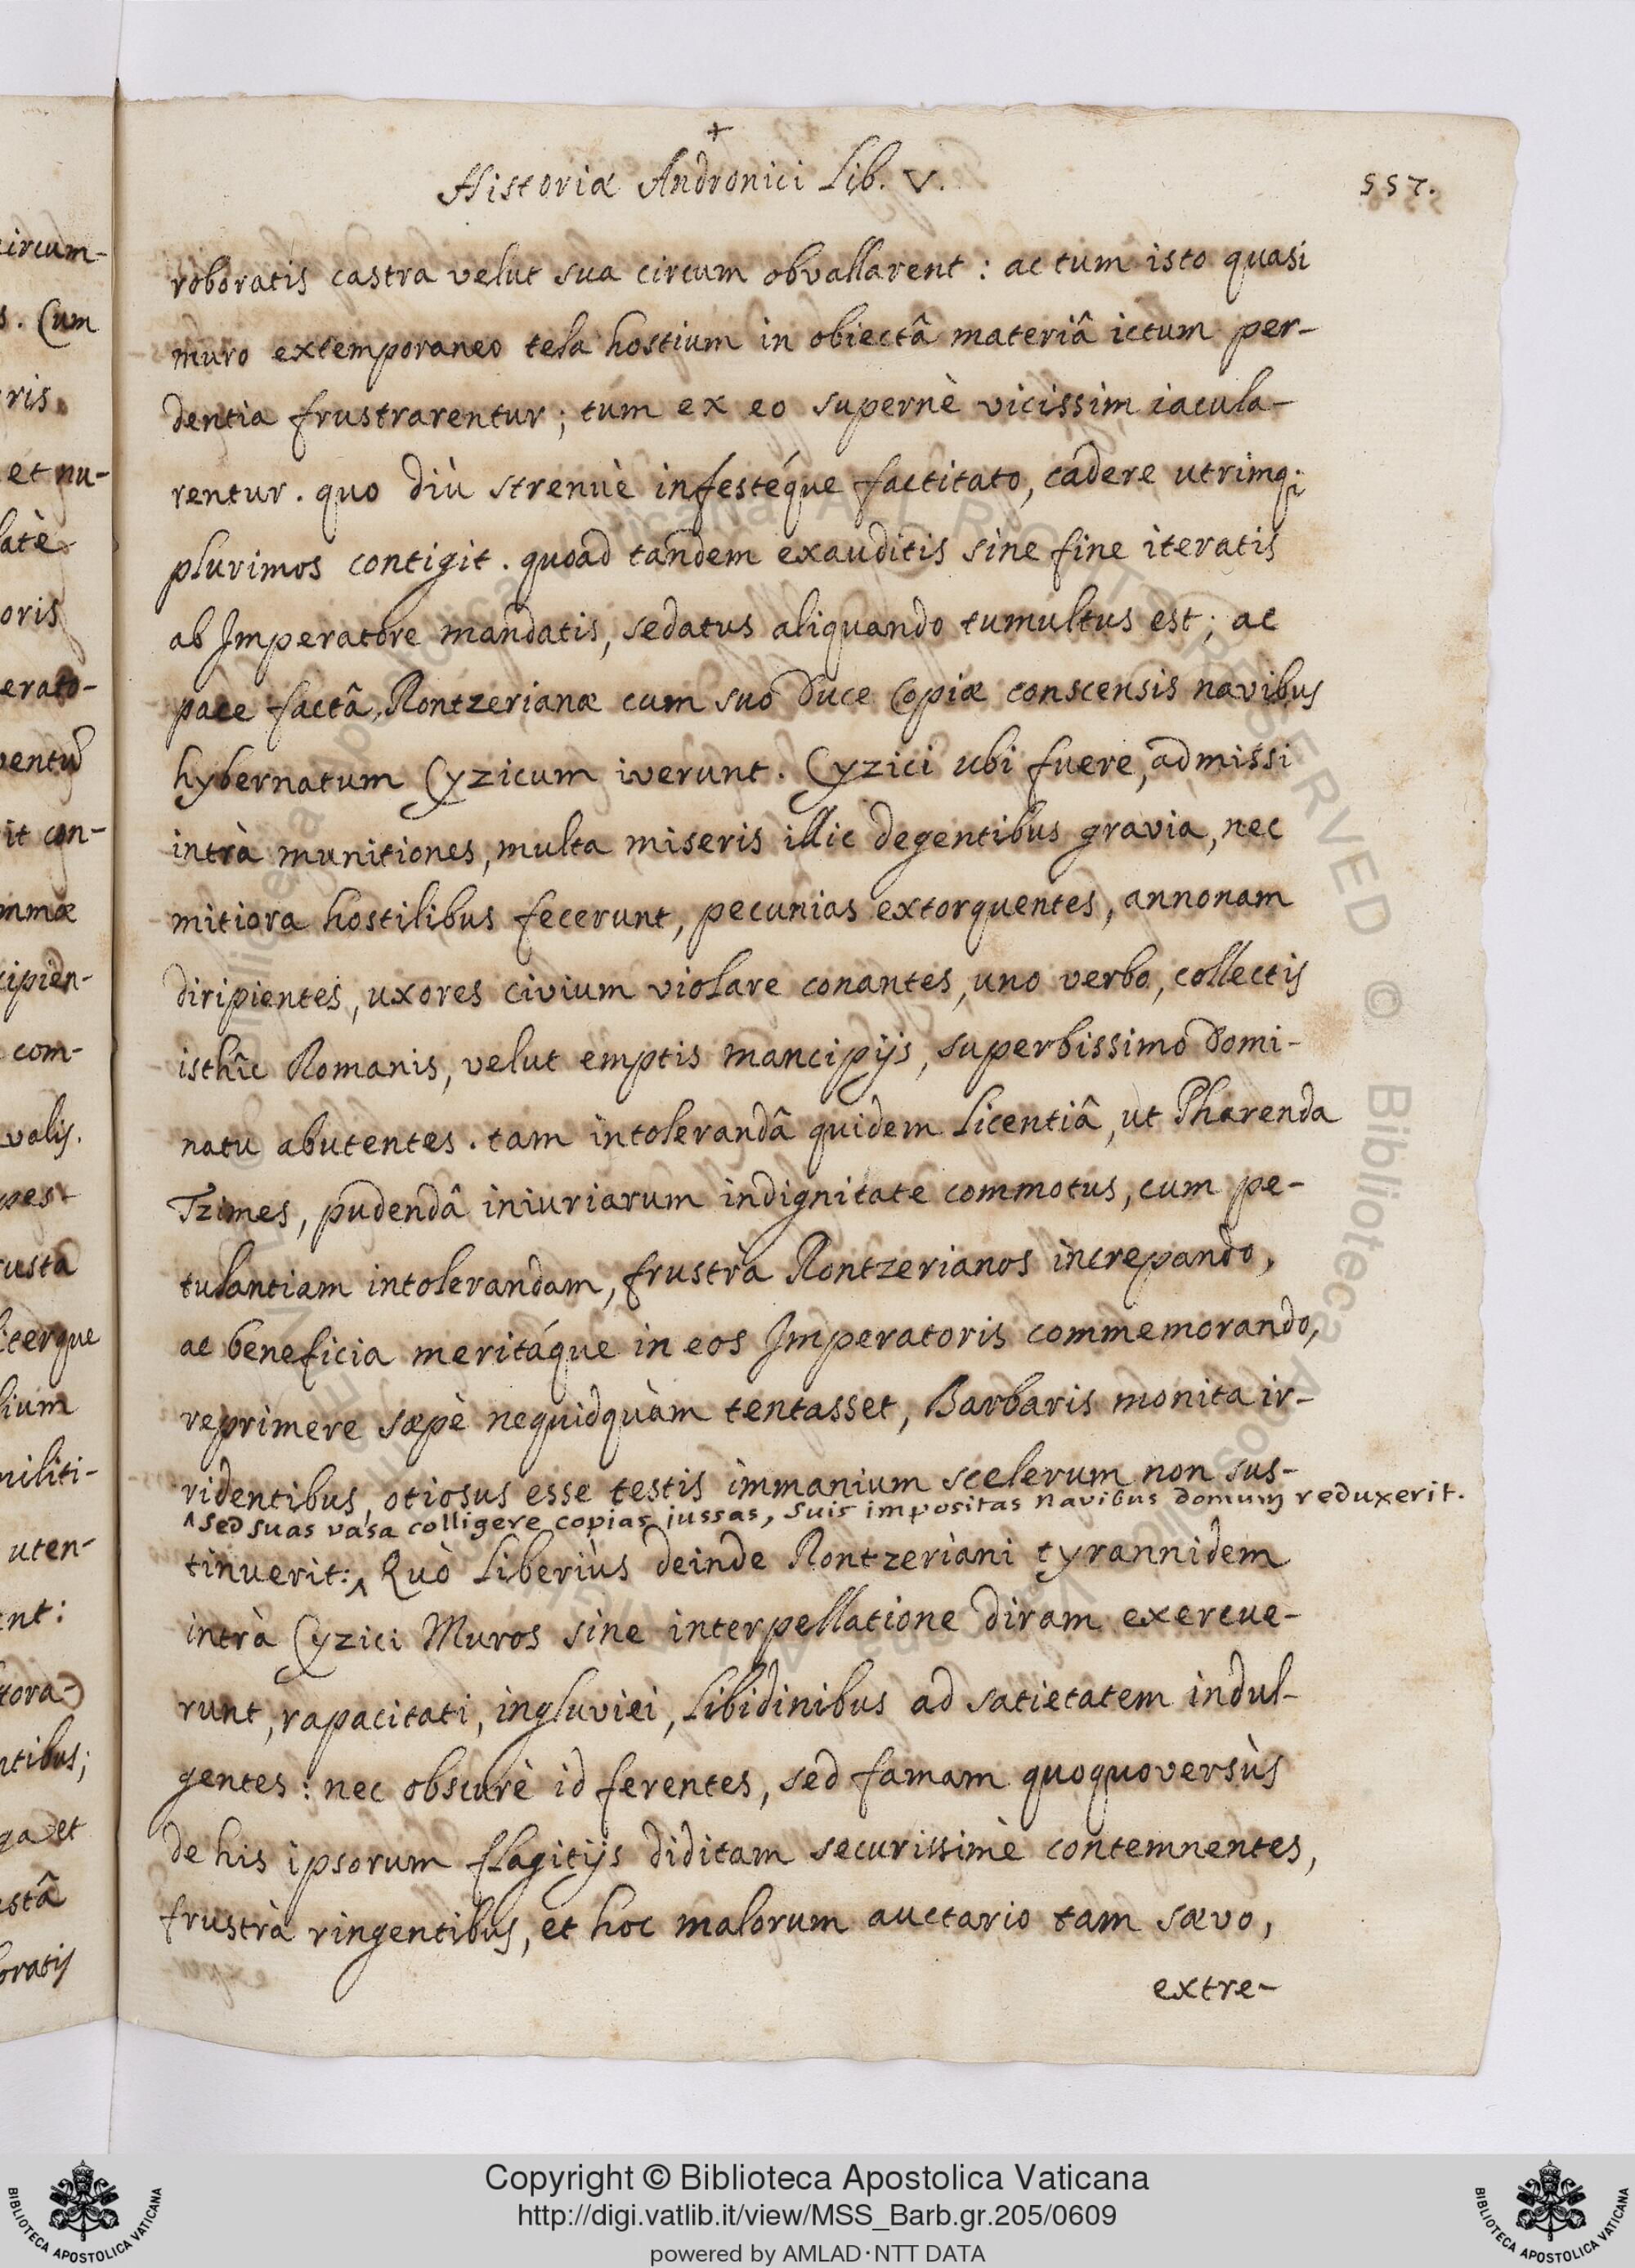 +
Historiæ Andronici Lib. V.
557.
roboratis castra velut sua circum obvallarent : ac tum isto quasi
muro extemporaneo tela hostium in obiectâ materiâ ictum per-
dentia frustrarentur ; tum ex eo supernè vicissim iacula-
rentur . quo diù strenuè infestéque factitato, cadere utrimq;
plurimos contigit . quoad tandem exauditis sine fine iteratis
ab Imperatore mandatis, sedatus aliquando tumultus est ; ac
pace factâ, Rontzerianæ cum suo Duce Copiæ conscensis navibus
hybernatum Cyzicum iverunt . Cyzici ubi fuere, admissi
intrà munitiones, multa miseris illic degentibus gravia, nec
mitiora hostilibus fecerunt, pecunias extorquentes, annonam
diripientes, uxores civium violare conantes, uno verbo, collectis
isthîc Romanis, velut emptis mancipijs, superbissimo Domi-
natu abutentes . tam intolerandâ quidem licentiâ, ut Pharenda
Tzimes, pudendâ iniuriarum indignitate commotus, cum pe-
tulantiam intolerandam, frustrà Rontzerianos increpando,
ac beneficia meritáque in eos Imperatoris commemorando,
reprimere sæpè nequidquàm tentasset, Barbaris monita ir-
ridentibus, otiosus esse testis immanium scelerum non sus-
^ sed suas vasa colligere copias jussas, suis impositas navibus domum reduxerit.
tinuerit: ^ Quò liberiùs deinde Rontzeriani tyrannidem
intrà Cyzici Muros sine interpellatione diram exercue-
runt, rapacitati, ingluviei, libidinibus ad satietatem indul-
gentes : nec obscurè id ferentes, sed famam quoquoversùs
de his ipsorum flagitijs diditam securissimè contemnentes,
frustrà ringentibus, et hoc malorum auctario tam sævo,
extre-
ircum-
s. Cum
ris
et nu-
latè
oris
erato-
it con-
mmæ
cipien-
com-
valis.
pest
usta
iterque
lium
militi-
uten-
ent:
tora-
ntibus;
ga et
stâ
boratis
© Biblioteca Apostolica Vaticana ALL RIGHTS RESERVED
Copyright © Biblioteca Apostolica Vaticana
http://digi.vatlib.it/view/MSS_Barb.gr.205/0609
powered by AMLAD·NTT DATA
BIBLIOTECA APOSTOLICA VATICANA
BIBLIOTECA APOSTOLICA VATICANA